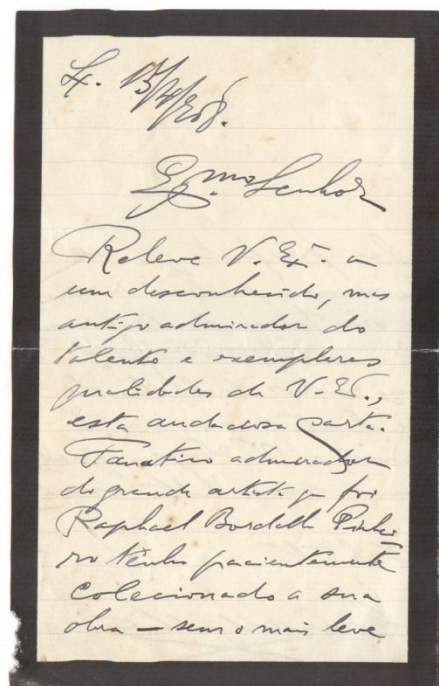 Lx. 13/7/908.
Exmo Senhor
Releve V. Ex.ª a
um desconhecido, mas
antigo admirador do
talento e exemplares
qualidades de V. Ex.,
esta audaciosa carta.
Fanatico admirador
do grande artista q foi
Raphael Bordallo Pinhei=
ro tenho pacientemente
colecionado a sua
obra — sem o mais leve